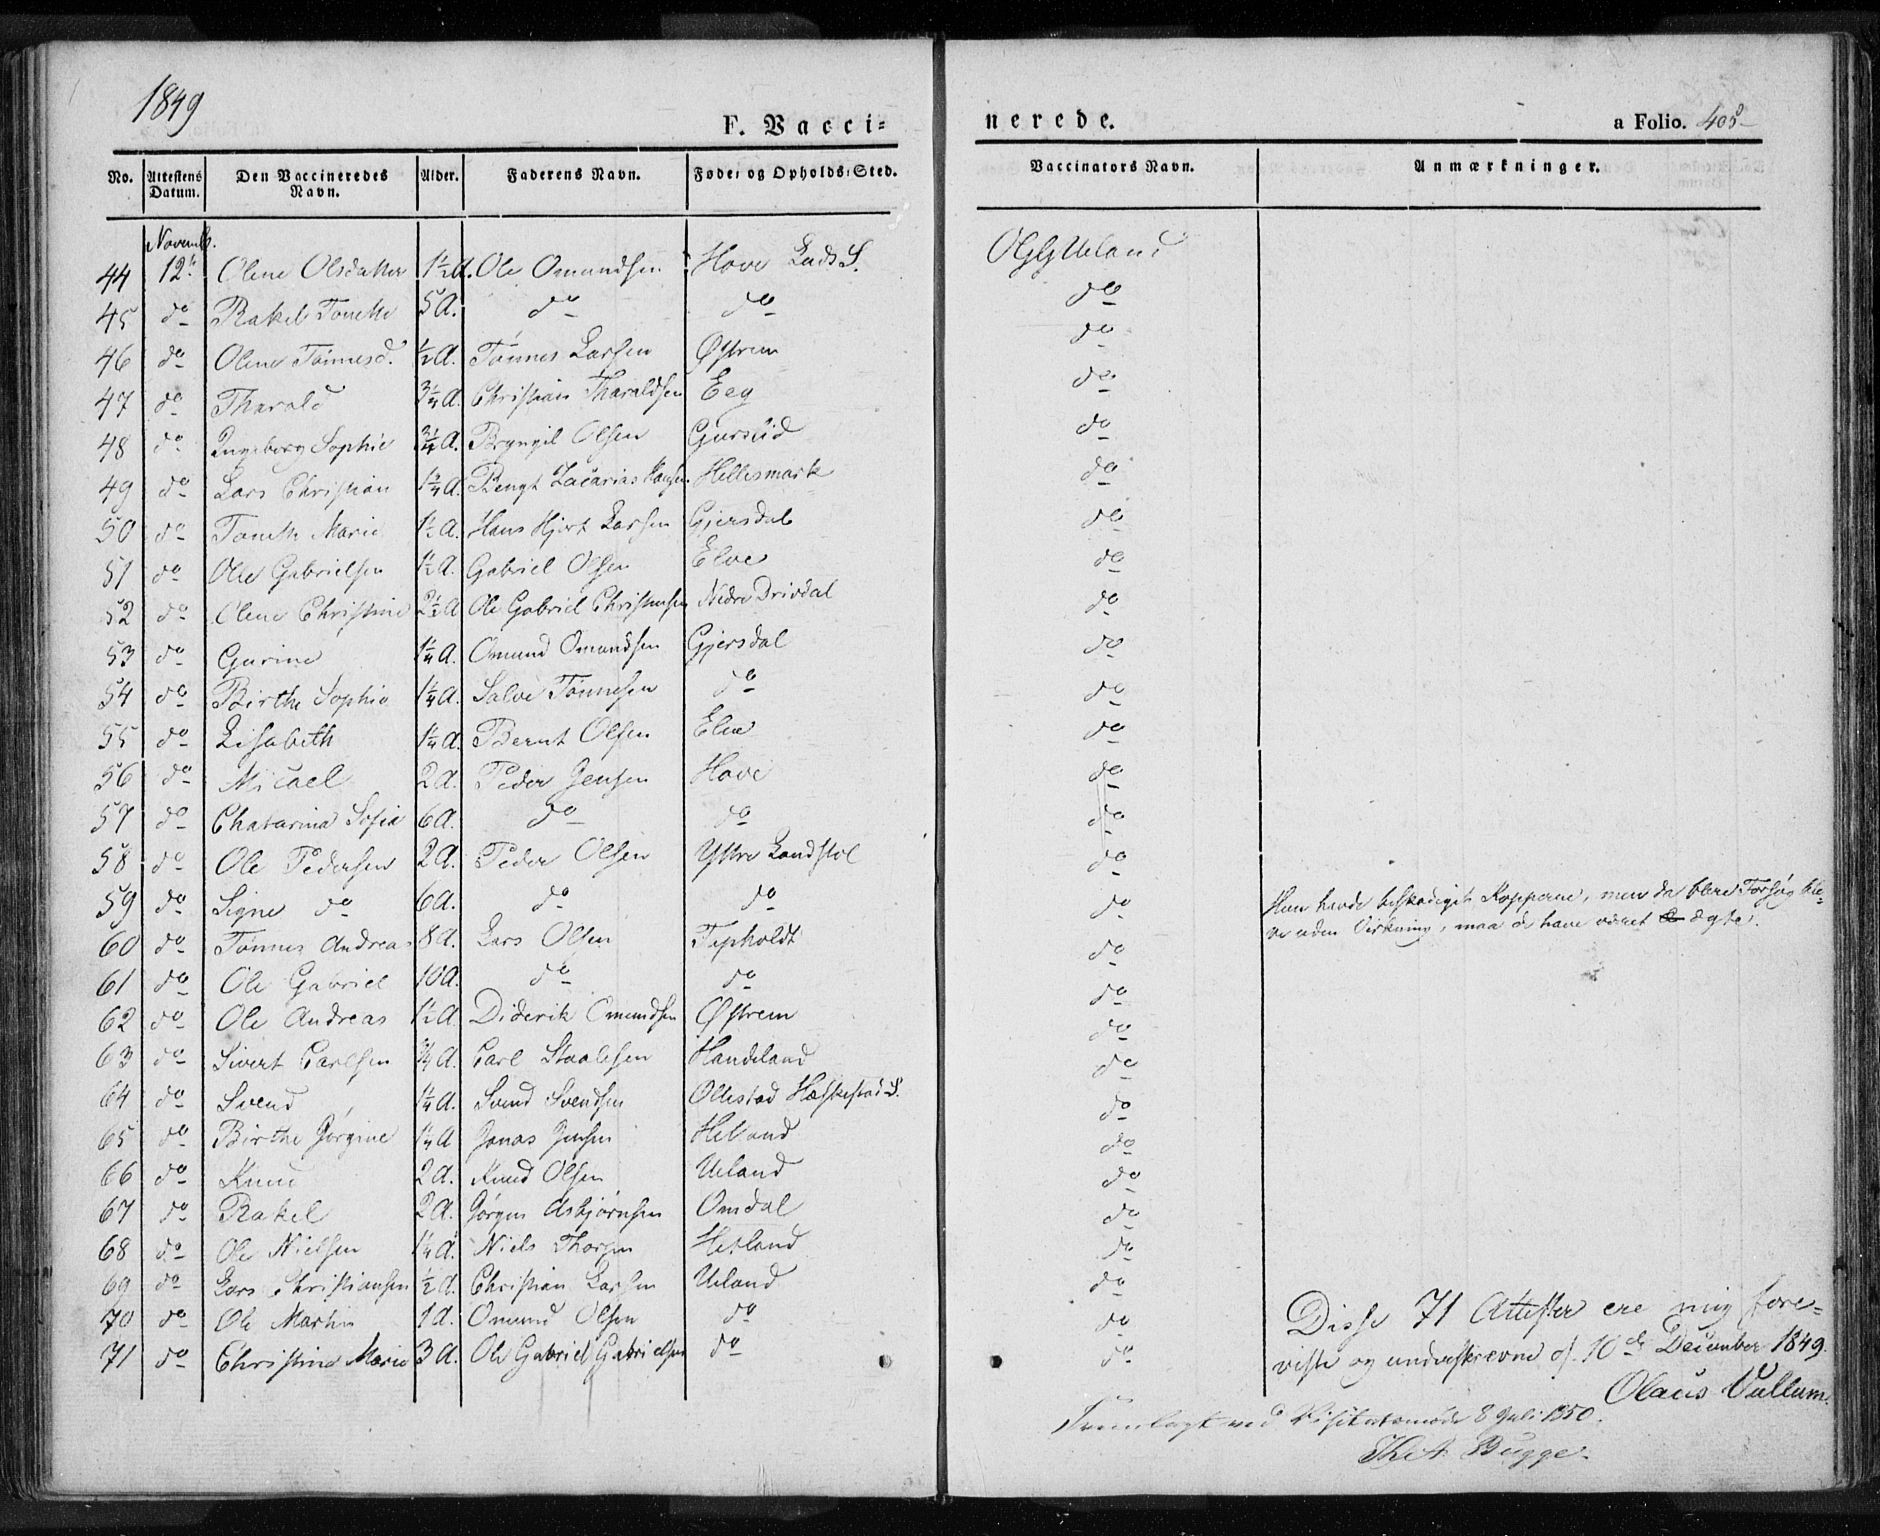 1849
F. Vacci=
nerede.
a Folio. 408
No. Attestens Datum. Den Vaccineredes Navn. Alder. Faderens Navn. Føde- og Opholds-Sted. Vaccinators Navn. Anmærkninger.
Novemb.
44 12te Olene Olsdatter 1½ A. Ole Omundsen Hove Lunds S. Ueland
45 do Rakel Tonette 5 A. do do do
46 do Olene Tønnesd. ½ A. Tønnes Larsen Østrem do
47 do Tharald 3¼ A. Christian Tharaldsen Eeg do
48 do Ingeborg Sophie A. Bryngil Olsen Gurslid do
49 do Lars Christian 1¾ A. Bengt Zacarias Hansen Hellesmark do
50 do Toneth Marie 1½ A. Hans Hjort Larsen Gjersdal do
51 do Ole Gabrielsen 1½ A. Gabriel Olsen Elve do
52 do Olene Christine 2½ A Ole Gabriel Christensen Nedre Drivdal do
53 do Gurine 1¼ A. Omund Omundsen Gjersdal do
54 do Birthe Sophie 1¼ A. Salve Tønnesen do do
55 do Lisabeth 1¼ A. Bernt Olsen Elve do
56 do Micael 2 A. Peder Jensen Hove do
57 do Chatarina Sofia 6 A. do do do
58 do Ole Pedersen 2 A. Peder Olsen Yttre Landstol do
59 do Signe do 6 A. do do do Hun havde beskadiget Kopperne, men da flere Forsøg ble-
ve uden Virkning, maa de have været ægte.
60 do Tønnes Andreas 8 A. Lars Olsen Tepholdt do
61 do Ole Gabriel 10 A. do do do
62 do Ole Andreas 1½ A. Diderik Omundsen Østrem do
63 do Sivert Carlsen ¾ A. Carl Staalesen Handeland do
64 do Svend 1¼ A. Svend Svendsen Ollestad Hæskestad S. do
65 do Birthe Jørgine 1¼ A Jonas Jensen Helland do
66 do Knud 2 A. Knud Olsen Ueland do
67 do Rakel 2 A. Jørgen Asbjørnsen Omdal do
68 do Ole Nielsen 1¼ A. Niels Thorsen Hetland do
69 do Lars Christiansen ½ A. Christian Larsen Ueland do
70 do Ole Martin 1 A. Omund Olsen do do
71 do Christine Marie 3 A. Ole Gabriel Gabrielsen do do
Disse 71 Attester ere mig fore-
viste og underskrevne d. 10de December 1849.
Olaus Vullum.
Fremlagt ved Visitatsmøde 8 Juli 1850.
Bugge.